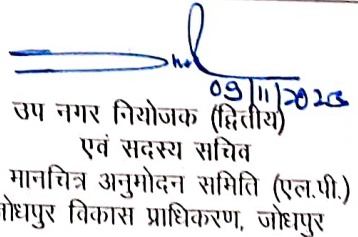 09/11/2023
उप नगर नियोजक (द्वितीय)
एवं सदस्य सचिव
मानचित्र अनुमोदन समिति (एल.पी.)
जोधपुर विकास प्राधिकरण, जोधपुर